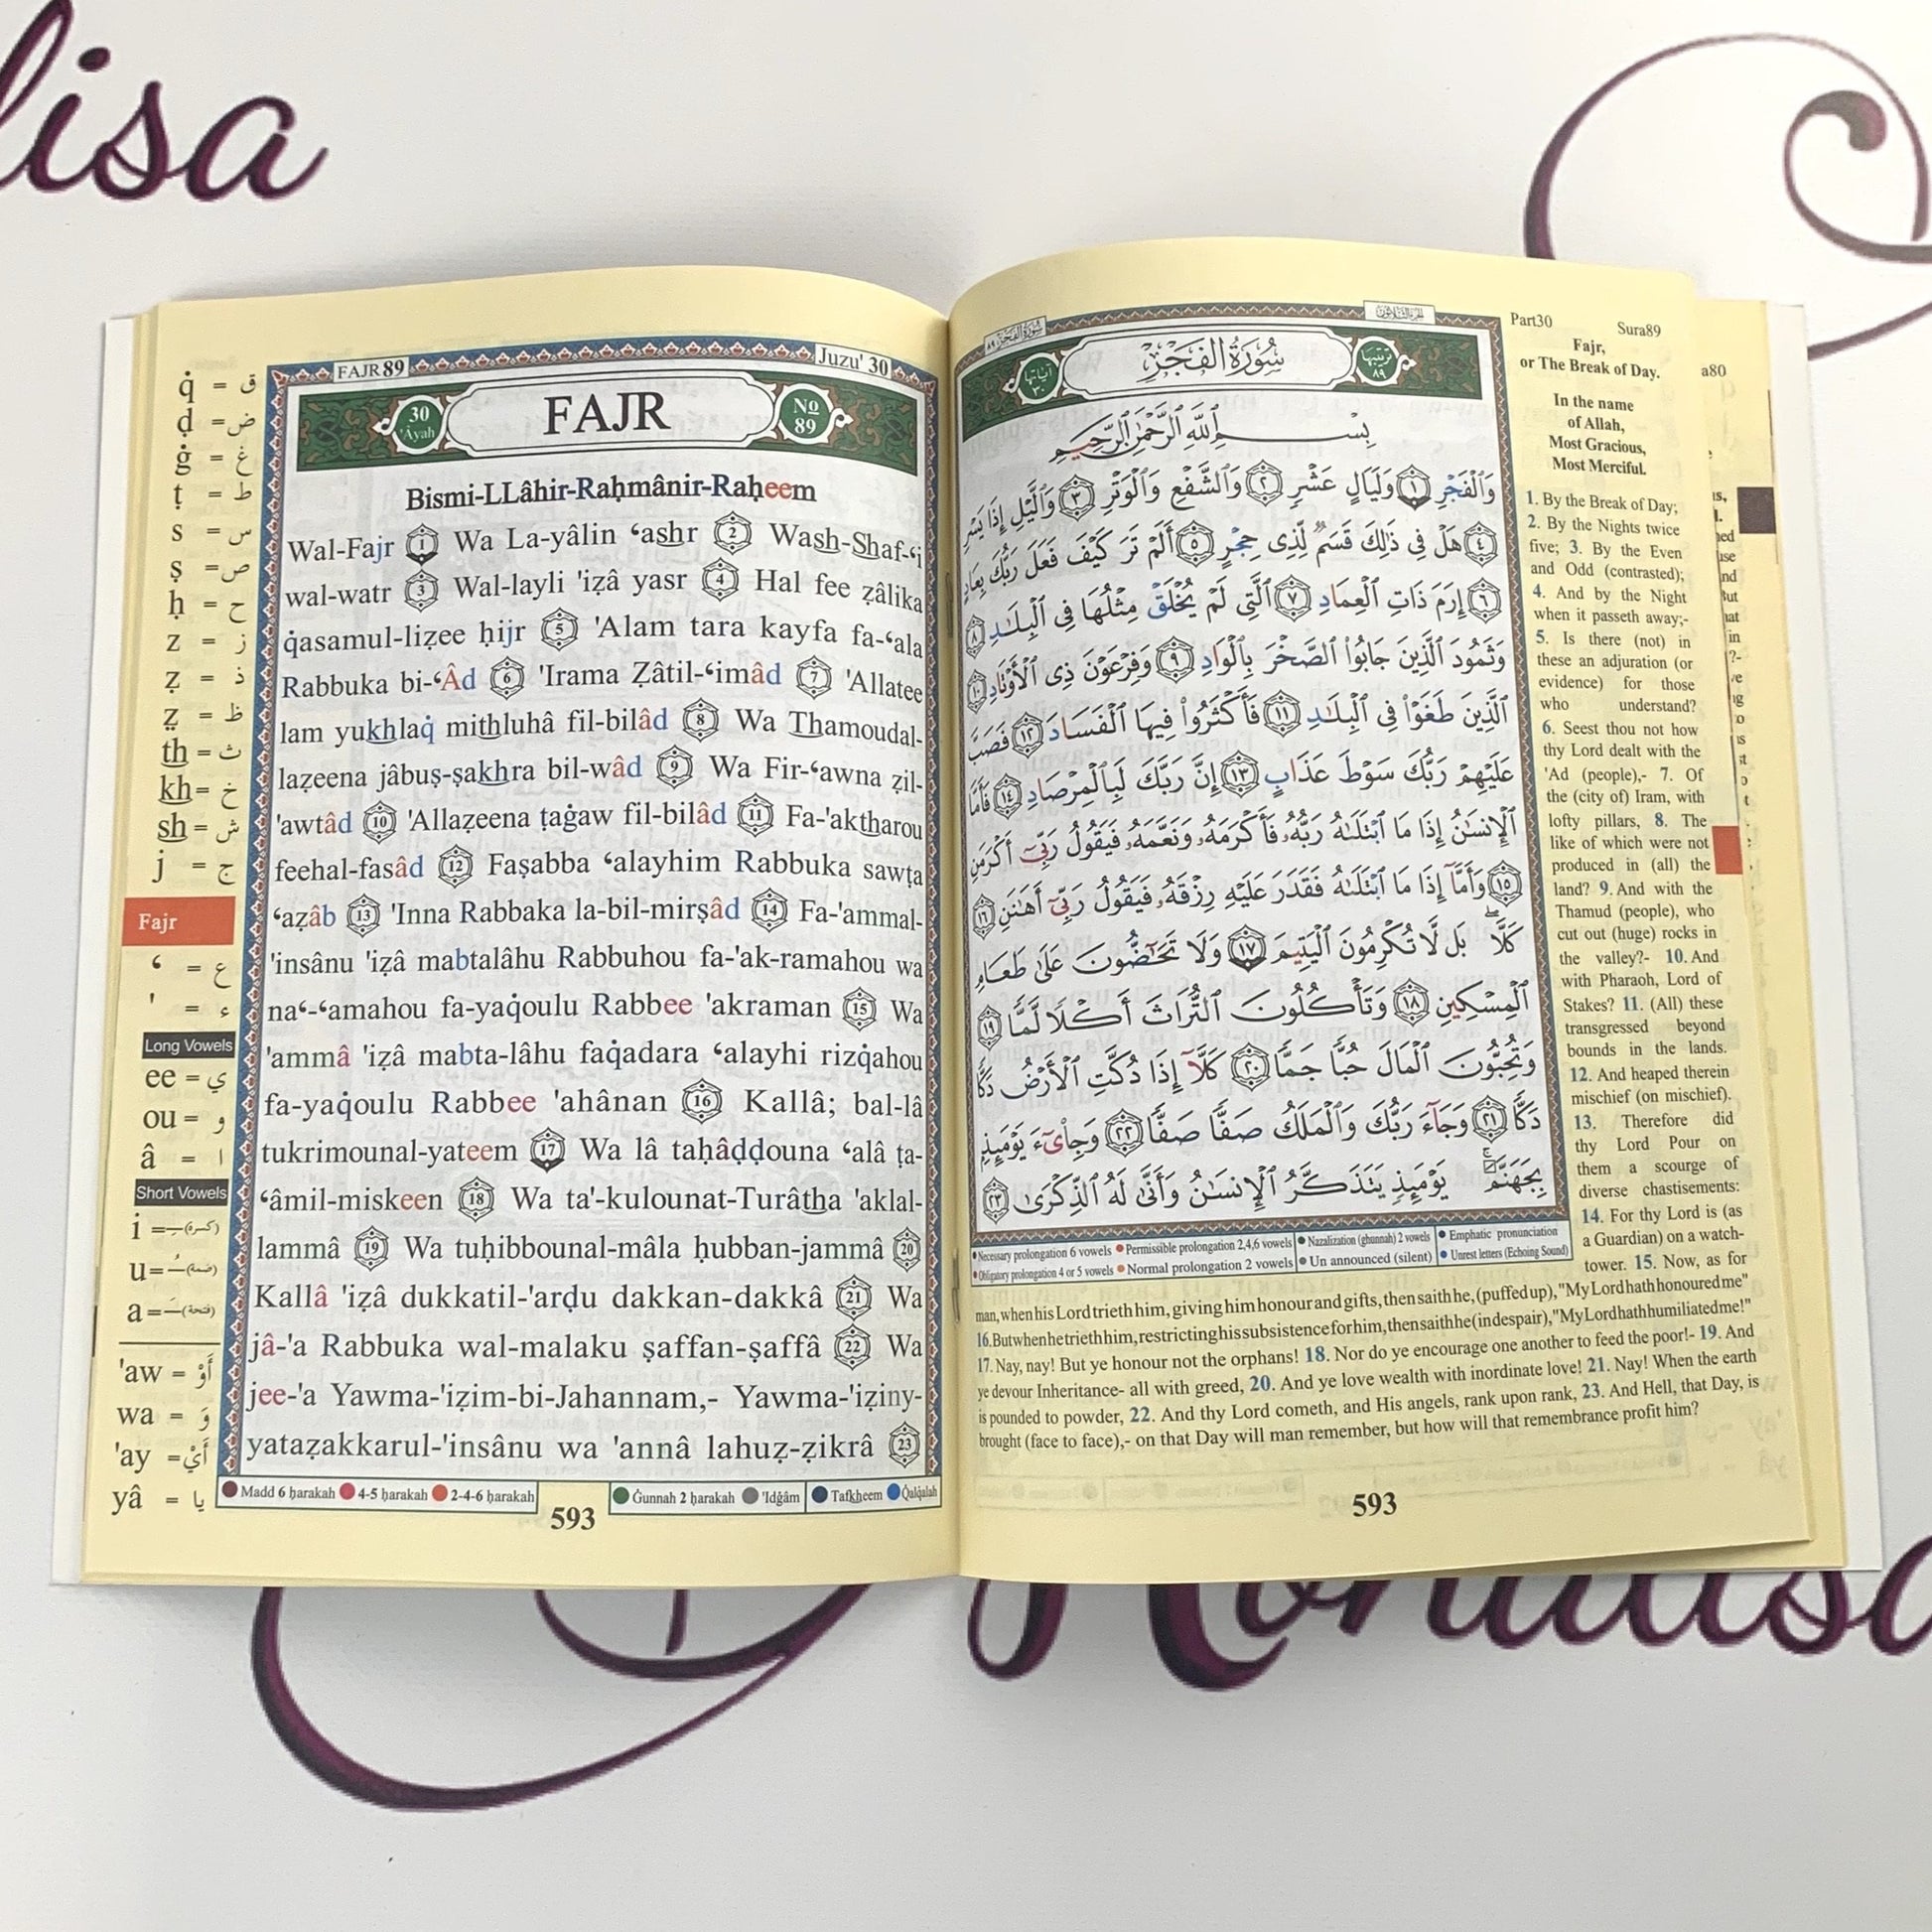 lisa
q̇ = ق
ḍ = ض
ġ = غ
ṭ = ط
s = س
ṣ = ص
ḥ = ح
z = ز
ẓ = ذ
z̤ = ظ
th = ث
kh = خ
sh = ش
j = ج
Fajr
‘ = ع
' = ء
Long Vowels
ee = ي
ou = و
â = ا
Short Vowels
i = (كسرة)
u = (ضمة)
a = (فتحة)
'aw = أَوْ
wa = وَ
'ay = أَيْ
yâ = يا
FAJR 89
Juzu' 30
30 'Âyah
FAJR
No 89
Bismi-LLâhir-Raḥmânir-Raḥeem
Wal-Fajr 1 Wa La-yâlin ‘ashr 2 Wash-Shaf-‘i
wal-watr 3 Wal-layli 'iẓâ yasr 4 Hal fee ẓâlika
q̇asamul-liẓee ḥijr 5 'Alam tara kayfa fa-‘ala
Rabbuka bi-‘Âd 6 'Irama Ẓâtil-‘imâd 7 'Allatee
lam yukhlaq̇ mithluhâ fil-bilâd 8 Wa Thamoudal-
laẓeena jâbuṣ-ṣakhra bil-wâd 9 Wa Fir-‘awna ẓil-
'awtâd 10 'Allaẓeena ṭaġaw fil-bilâd 11 Fa-'aktharou
feehal-fasâd 12 Faṣabba ‘alayhim Rabbuka sawṭa
‘aẓâb 13 'Inna Rabbaka la-bil-mirṣâd 14 Fa-'ammal-
'insânu 'iẓâ mabtalâhu Rabbuhou fa-'ak-ramahou wa
na‘-‘amahou fa-yaq̇oulu Rabbee 'akraman 15 Wa
'ammâ 'iẓâ mabta-lâhu faq̇adara ‘alayhi rizq̇ahou
fa-yaq̇oulu Rabbee 'ahânan 16 Kallâ; bal-lâ
tukrimounal-yateem 17 Wa lâ taḥâḍḍouna ‘alâ ṭa-
‘âmil-miskeen 18 Wa ta'-kulounat-Turâtha 'aklal-
lammâ 19 Wa tuḥibbounal-mâla ḥubban-jammâ 20
Kallâ 'iẓâ dukkatil-'arḍu dakkan-dakkâ 21 Wa
jâ-'a Rabbuka wal-malaku ṣaffan-ṣaffâ 22 Wa
jee-'a Yawma-'iẓim-bi-Jahannam,- Yawma-'iẓiny-
yataẓakkarul-'insânu wa 'annâ lahuẓ-ẓikrâ 23
Madd 6 ḥarakah 4-5 ḥarakah 2-4-6 ḥarakah
Ġunnah 2 ḥarakah 'Idġâm Tafkheem Q̇alq̇alah
593
سُورَةُ الفَجْرِ ٨٩
الجزء الثلاثون
آياتها ٣٠
سُورَةُ الفَجْرِ
ترتيبها ٨٩
بِسْمِ ٱللَّهِ ٱلرَّحْمَٰنِ ٱلرَّحِيمِ
وَٱلْفَجْرِ ١ وَلَيَالٍ عَشْرٍ ٢ وَٱلشَّفْعِ وَٱلْوَتْرِ ٣ وَٱلَّيْلِ إِذَا يَسْرِ
٤ هَلْ فِى ذَٰلِكَ قَسَمٌ لِّذِى حِجْرٍ ٥ أَلَمْ تَرَ كَيْفَ فَعَلَ رَبُّكَ بِعَادٍ
٦ إِرَمَ ذَاتِ ٱلْعِمَادِ ٧ ٱلَّتِى لَمْ يُخْلَقْ مِثْلُهَا فِى ٱلْبِلَٰدِ ٨
وَثَمُودَ ٱلَّذِينَ جَابُوا۟ ٱلصَّخْرَ بِٱلْوَادِ ٩ وَفِرْعَوْنَ ذِى ٱلْأَوْتَادِ ١٠
ٱلَّذِينَ طَغَوْا۟ فِى ٱلْبِلَٰدِ ١١ فَأَكْثَرُوا۟ فِيهَا ٱلْفَسَادَ ١٢ فَصَبَّ
عَلَيْهِمْ رَبُّكَ سَوْطَ عَذَابٍ ١٣ إِنَّ رَبَّكَ لَبِٱلْمِرْصَادِ ١٤ فَأَمَّا
ٱلْإِنسَٰنُ إِذَا مَا ٱبْتَلَىٰهُ رَبُّهُۥ فَأَكْرَمَهُۥ وَنَعَّمَهُۥ فَيَقُولُ رَبِّىٓ أَكْرَمَنِ
١٥ وَأَمَّآ إِذَا مَا ٱبْتَلَىٰهُ فَقَدَرَ عَلَيْهِ رِزْقَهُۥ فَيَقُولُ رَبِّىٓ أَهَٰنَنِ ١٦
كَلَّا ۖ بَل لَّا تُكْرِمُونَ ٱلْيَتِيمَ ١٧ وَلَا تَحَٰٓضُّونَ عَلَىٰ طَعَامِ
ٱلْمِسْكِينِ ١٨ وَتَأْكُلُونَ ٱلتُّرَاثَ أَكْلًا لَّمًّا ١٩
وَتُحِبُّونَ ٱلْمَالَ حُبًّا جَمًّا ٢٠ كَلَّآ إِذَا دُكَّتِ ٱلْأَرْضُ دَكًّا
دَكًّا ٢١ وَجَآءَ رَبُّكَ وَٱلْمَلَكُ صَفًّا صَفًّا ٢٢ وَجِا۟ىٓءَ يَوْمَئِذٍۭ
بِجَهَنَّمَ ۚ يَوْمَئِذٍ يَتَذَكَّرُ ٱلْإِنسَٰنُ وَأَنَّىٰ لَهُ ٱلذِّكْرَىٰ ٢٣
Necessary prolongation 6 vowels Permissible prolongation 2,4,6 vowels Nazalization (ghunnah) 2 vowels Emphatic pronunciation
Obligatory prolongation 4 or 5 vowels Normal prolongation 2 vowels Un announced (silent) Unrest letters (Echoing Sound)
Part30
Sura89
Fajr,
or The Break of Day.
In the name
of Allah,
Most Gracious,
Most Merciful.
1. By the Break of Day;
2. By the Nights twice
five; 3. By the Even
and Odd (contrasted);
4. And by the Night
when it passeth away;-
5. Is there (not) in
these an adjuration (or
evidence) for those
who understand?
6. Seest thou not how
thy Lord dealt with the
'Ad (people),- 7. Of
the (city of) Iram, with
lofty pillars, 8. The
like of which were not
produced in (all) the
land? 9. And with the
Thamud (people), who
cut out (huge) rocks in
the valley?- 10. And
with Pharaoh, Lord of
Stakes? 11. (All) these
transgressed beyond
bounds in the lands.
12. And heaped therein
mischief (on mischief).
13. Therefore did
thy Lord Pour on
them a scourge of
diverse chastisements:
14. For thy Lord is (as
a Guardian) on a watch-
tower. 15. Now, as for
man, when his Lord trieth him, giving him honour and gifts, then saith he, (puffed up), "My Lord hath honoured me"
16. But when he trieth him, restricting his subsistence for him, then saith he (in despair), "My Lord hath humiliated me!"
17. Nay, nay! But ye honour not the orphans! 18. Nor do ye encourage one another to feed the poor!- 19. And
ye devour Inheritance- all with greed, 20. And ye love wealth with inordinate love! 21. Nay! When the earth
is pounded to powder, 22. And thy Lord cometh, and His angels, rank upon rank, 23. And Hell, that Day, is
brought (face to face),- on that Day will man remember, but how will that remembrance profit him?
593
a80